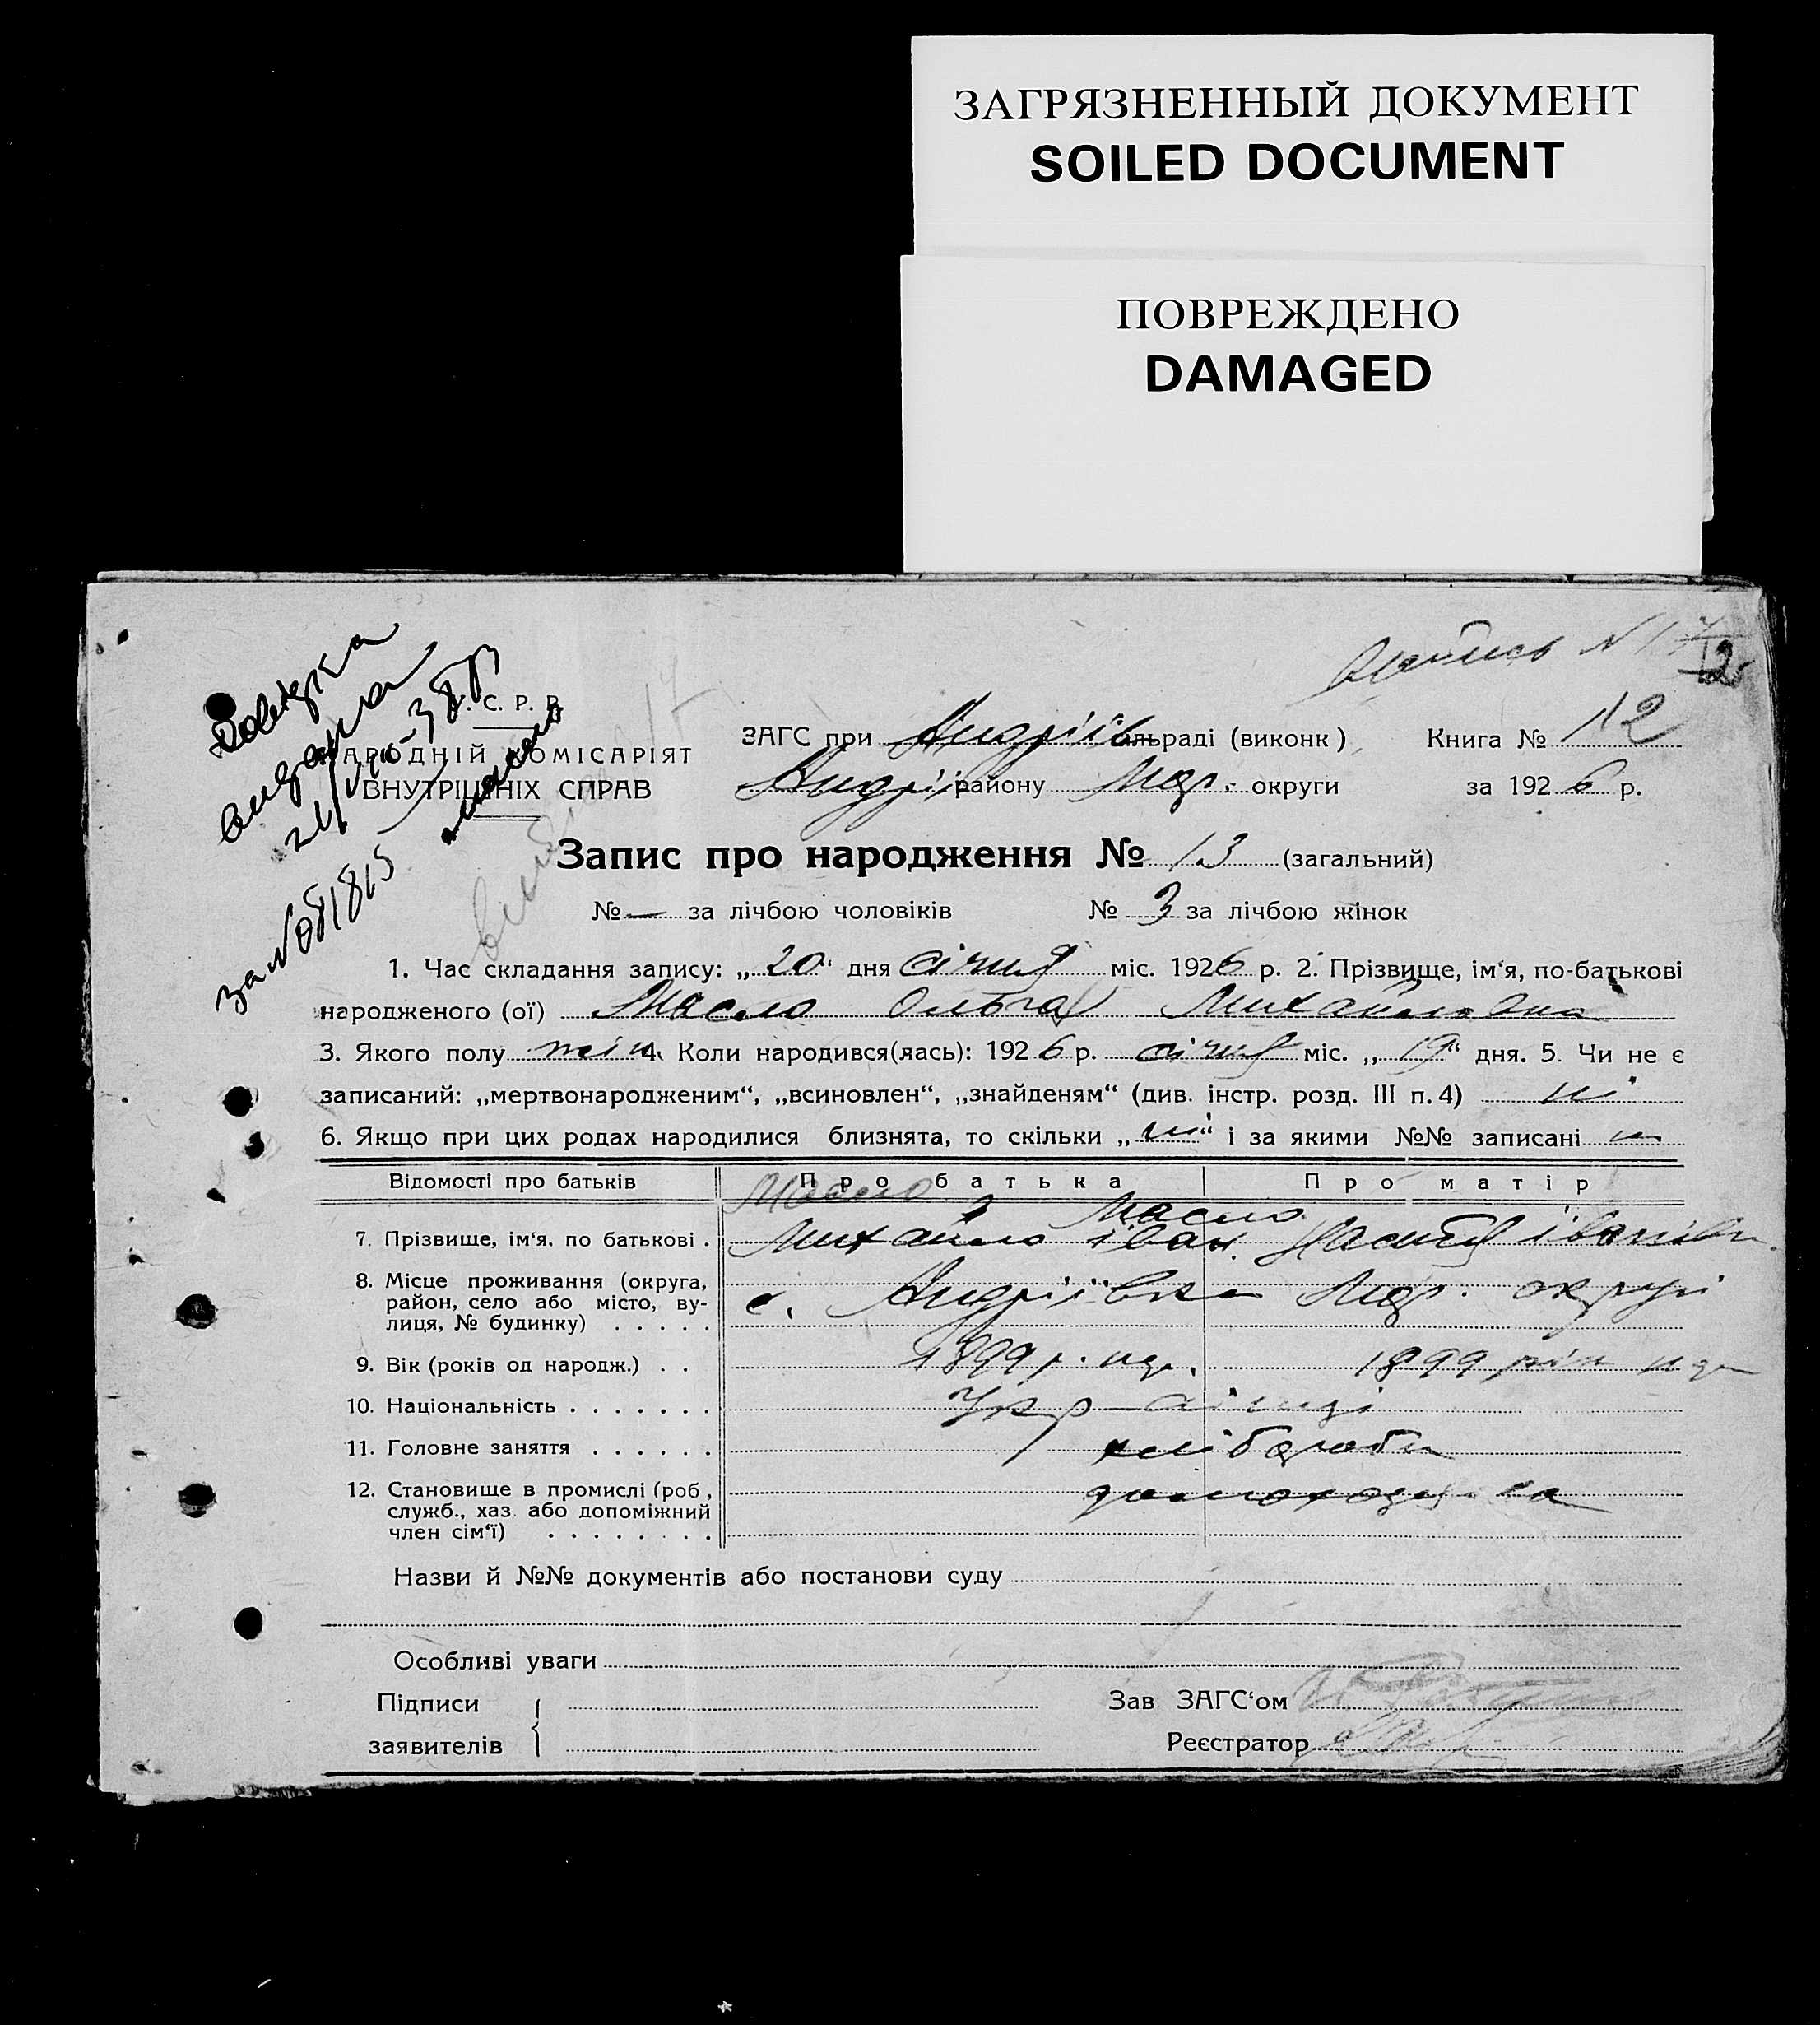 ЗАГРЯЗНЕННЫЙ ДОКУМЕНТ
SOILED DOCUMENT
ПОВРЕЖДЕНО
DAMAGED
Довідка
видана
за №
Масло
У. С. Р. Р.
НАРОДНІЙ КОМІСАРІЯТ
ВНУТРІШНІХ СПРАВ
ЗАГС при Андріїв ільраді (виконк) Книга № 112
Андрії району Мар. округи за 1926 р.
Запис про народження № 13 (загальний)
№ — за лічбою чоловіків № 3 за лічбою жінок
1. Час складання запису: „20“ дня січня міс. 1926 р. 2. Прізвище, ім‘я, по-батькові
народженого (ої) Масло Ольга Михайловна
3. Якого полу жін. 4. Коли народився(лась): 1926 р. січня міс. „19“ дня. 5. Чи не є
записаний: „мертвонародженим“, „всиновлен“, „знайденям“ (див. інстр. розд. III п. 4) ні
6. Якщо при цих родах народилися близнята, то скільки „ні“ і за якими №№ записані
Відомості про батьків Про батька Про матір
Масло Масло
7. Прізвище, ім‘я, по батькові . Михайло Іван. Настя Іванівн.
8. Місце проживання (округа,
район, село або місто, ву-
лиця, № будинку) . . . . . с. Андріївка Мар. округи
9. Вік (років од народж.) . . 1899 р. нар. 1899 рік нар
10. Національність . . . . . . . Укр
11. Головне заняття . . . . . . хлібороби
12. Становище в промислі (роб.,
служб., хаз. або допоміжний
член сім‘ї) . . . . . . . .
Назви й №№ документів або постанови суду
Особливі уваги
Підписи Зав ЗАГС‘ом
заявителів Реєстратор